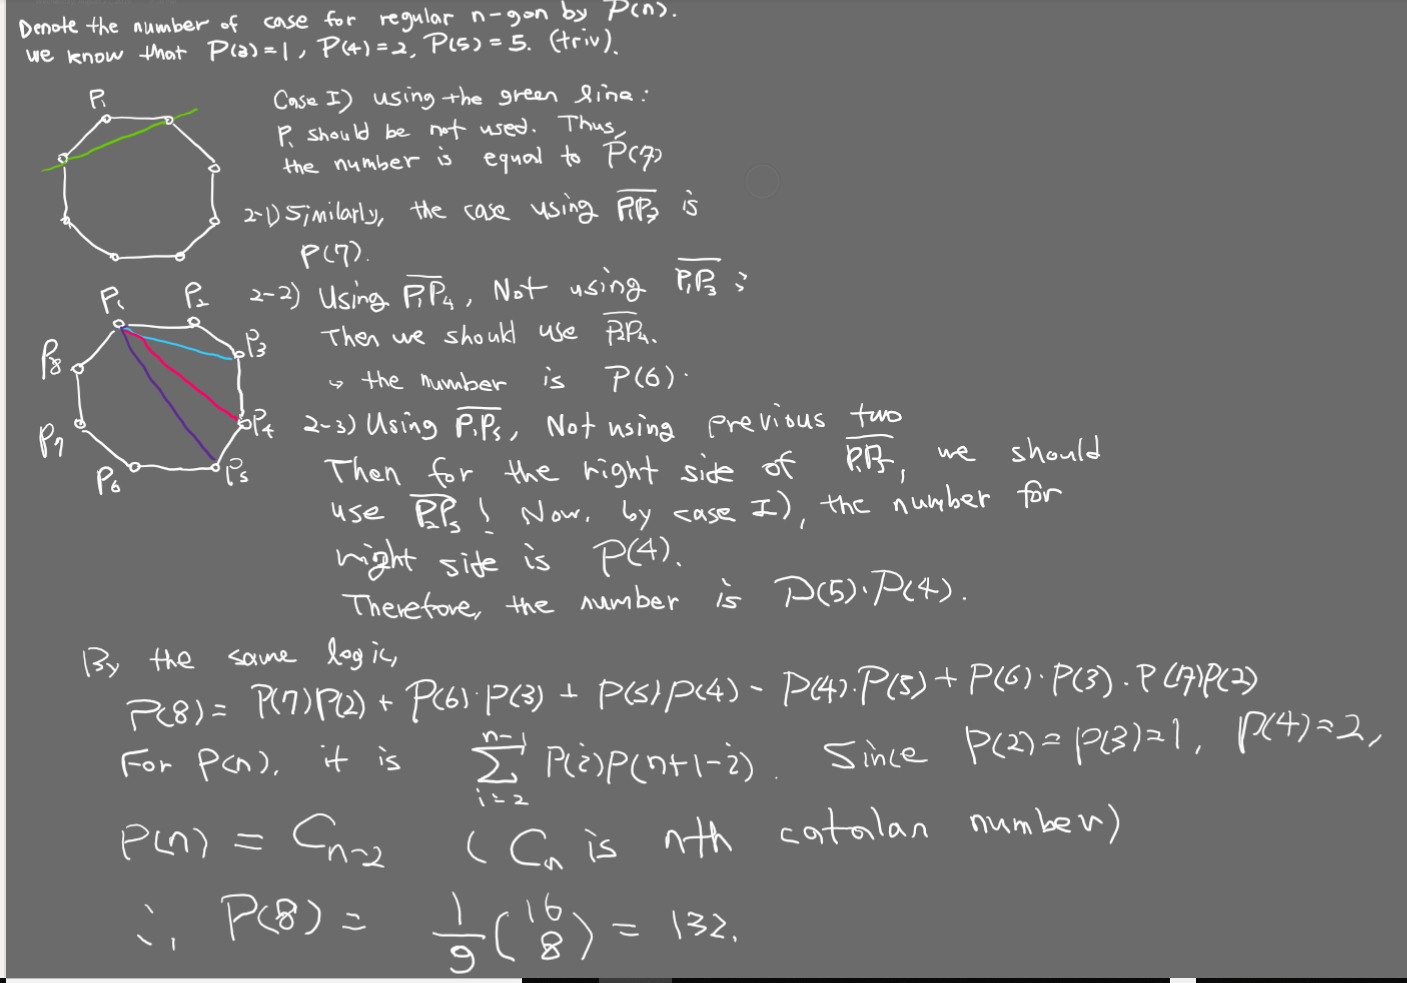 Denote the number of case for regular n-gon by P(n).
we know that P(3)=1, P(4)=2, P(5)=5. (triv).
P₁
Case I) using the green line:
P₁ should be not used. Thus,
the number is equal to P(7)
2-1) Similarly, the case using P₁P₃ is
P(7).
2-2) Using P₁P₄, Not using P₁P₃ :
Then we should use P₂P₄.
↳ the number is P(6).
2-3) Using P₁P₅, Not using previous two
Then for the right side of P₁P₅, we should
use P₂P₅! Now, by case I), the number for
right side is P(4).
Therefore, the number is P(5)·P(4).
P₁ P₂
P₃
P₈
P₄
P₇
P₆ P₅
By the same logic,
P(8)= P(7)P(2) + P(6)·P(3) + P(5)P(4) - P(4)·P(5) + P(6)·P(3) · P(7)P(2)
For P(n), it is \sum_{i=2}^{n-1} P(i)P(n+1-i). Since P(2)=P(3)=1, P(4)=2,
P(n) = C_{n-2} (C_n is nth catalan number)
∴, P(8) = \frac{1}{9}\binom{16}{8} = 132.